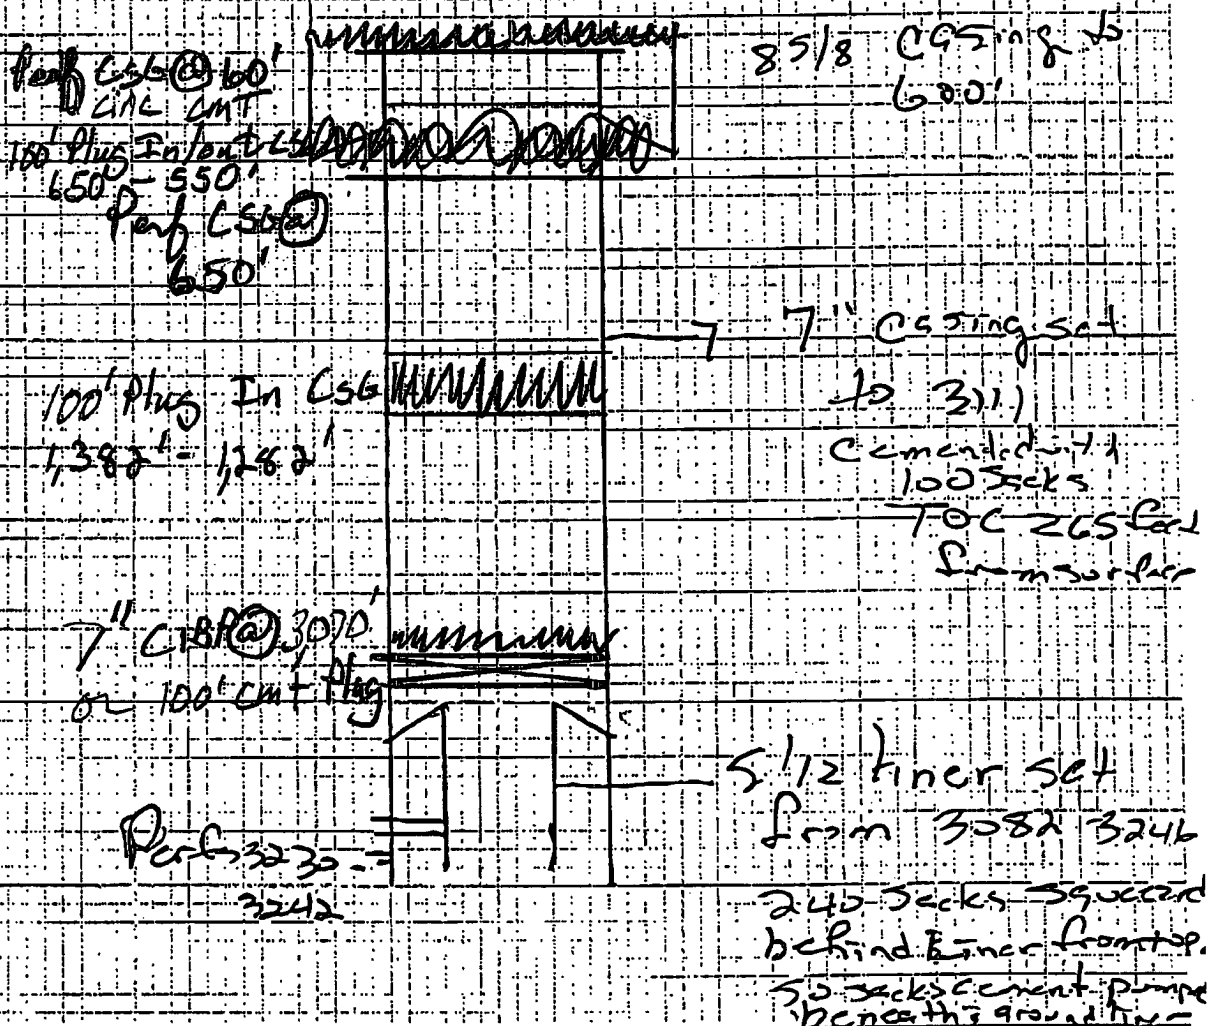 Perf CSG @ 60'
circ CMT
100' Plug In/out CSG
650' - 550'
Perf CSG @
650'
100' Plug In CSG
1,382' - 1,282'
7" CIBP @ 3070'
or 100' cmt Plug
Perfs 3230 -
3242
8 5/8 Casing to
600'
7" Casing set
to 3111
Cemented with
100 Sacks
TOC 265 feet
from surface
5 1/2 Liner set
from 3082 3246
240 Sacks squeezed
behind Liner from top.
50 sacks cement pumpe
beneath & around liner